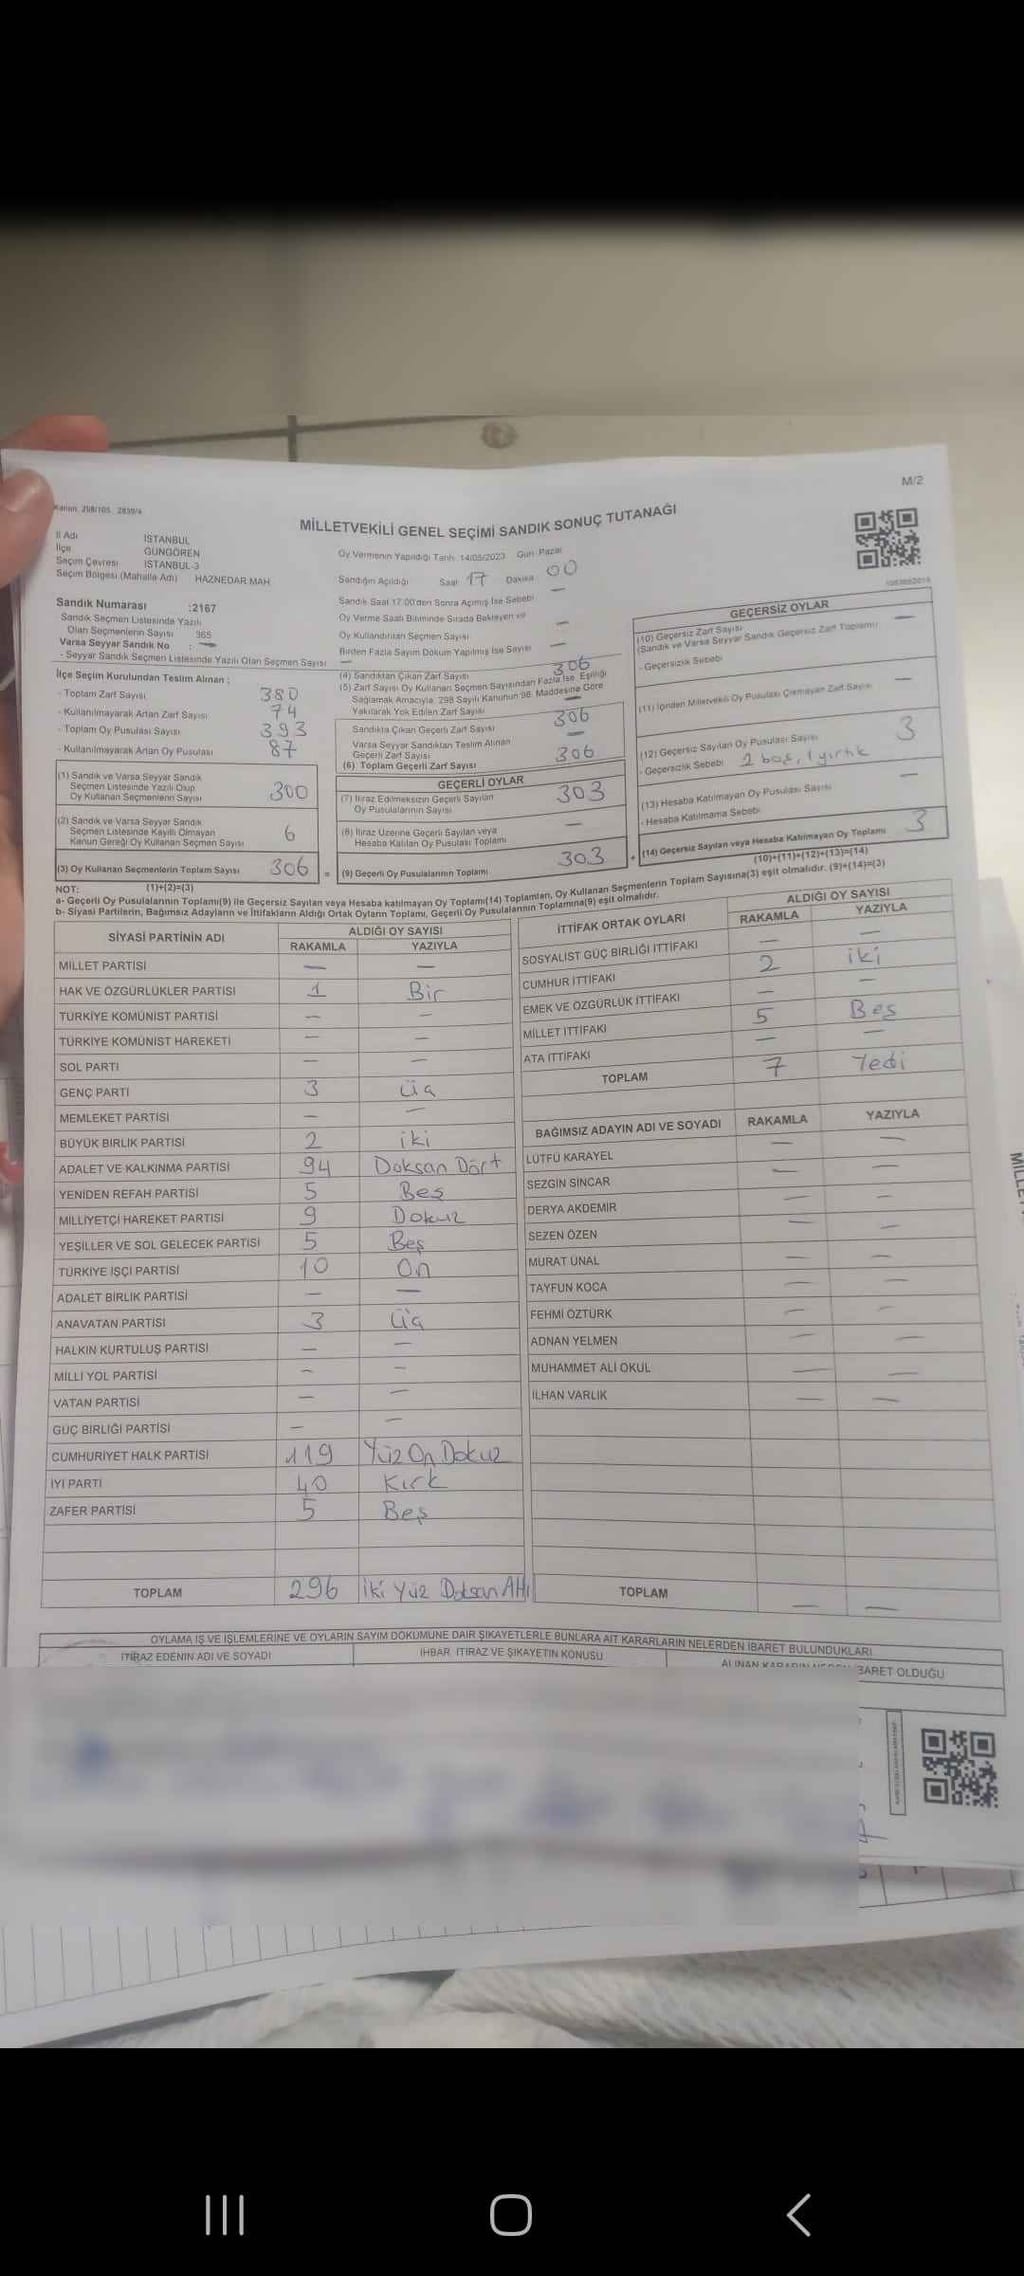 M/2
Kanun: 298/105, 2839/4
MİLLETVEKİLİ GENEL SEÇİMİ SANDIK SONUÇ TUTANAĞI
İl Adı İSTANBUL
İlçe GÜNGÖREN
Seçim Çevresi İSTANBUL-3
Seçim Bölgesi (Mahalle Adı) HAZNEDAR MAH
Oy Vermenin Yapıldığı Tarih: 14/05/2023 Gün: Pazar
Sandığın Açıldığı Saat 17 Dakika 00
Sandık Saat 17:00'den Sonra Açılmış İse Sebebi —
Oy Verme Saati Bitiminde Sırada Bekleyen ve
Oy Kullandırılan Seçmen Sayısı —
Birden Fazla Sayım Döküm Yapılmış İse Sayısı —
Sandık Numarası :2167
Sandık Seçmen Listesinde Yazılı
Olan Seçmenlerin Sayısı 365
Varsa Seyyar Sandık No : —
- Seyyar Sandık Seçmen Listesinde Yazılı Olan Seçmen Sayısı —
İlçe Seçim Kurulundan Teslim Alınan :
- Toplam Zarf Sayısı 380
- Kullanılmayarak Artan Zarf Sayısı 74
- Toplam Oy Pusulası Sayısı 393
- Kullanılmayarak Artan Oy Pusulası 87
(1) Sandık ve Varsa Seyyar Sandık
Seçmen Listesinde Yazılı Olup
Oy Kullanan Seçmenlerin Sayısı 300
(2) Sandık ve Varsa Seyyar Sandık
Seçmen Listesinde Kayıtlı Olmayan
Kanun Gereği Oy Kullanan Seçmen Sayısı 6
(3) Oy Kullanan Seçmenlerin Toplam Sayısı 306 =
(1)+(2)=(3)
(4) Sandıktan Çıkan Zarf Sayısı 306
(5) Zarf Sayısı Oy Kullanan Seçmen Sayısından Fazla İse, Eşitliği
Sağlamak Amacıyla, 298 Sayılı Kanunun 98. Maddesine Göre
Yakılarak Yok Edilen Zarf Sayısı —
Sandıkta Çıkan Geçerli Zarf Sayısı 306
Varsa Seyyar Sandıktan Teslim Alınan
Geçerli Zarf Sayısı —
(6) Toplam Geçerli Zarf Sayısı 306
GEÇERLİ OYLAR
(7) İtiraz Edilmeksizin Geçerli Sayılan
Oy Pusulalarının Sayısı 303
(8) İtiraz Üzerine Geçerli Sayılan veya
Hesaba Katılan Oy Pusulası Toplamı —
(9) Geçerli Oy Pusulalarının Toplamı 303 +
GEÇERSİZ OYLAR
(10) Geçersiz Zarf Sayısı —
(Sandık ve Varsa Seyyar Sandık Geçersiz Zarf Toplamı)
- Geçersizlik Sebebi
(11) İçinden Milletvekili Oy Pusulası Çıkmayan Zarf Sayısı —
(12) Geçersiz Sayılan Oy Pusulası Sayısı 3
- Geçersizlik Sebebi 2 boş, 1 yırtık
(13) Hesaba Katılmayan Oy Pusulası Sayısı —
- Hesaba Katılmama Sebebi
(14) Geçersiz Sayılan veya Hesaba Katılmayan Oy Toplamı 3
(10)+(11)+(12)+(13)=(14)
NOT:
a- Geçerli Oy Pusulalarının Toplamı(9) ile Geçersiz Sayılan veya Hesaba katılmayan Oy Toplamı(14) Toplamları, Oy Kullanan Seçmenlerin Toplam Sayısına(3) eşit olmalıdır. (9)+(14)=(3)
b- Siyasi Partilerin, Bağımsız Adayların ve İttifakların Aldığı Ortak Oyların Toplamı, Geçerli Oy Pusulalarının Toplamına(9) eşit olmalıdır.
SİYASİ PARTİNİN ADI ALDIĞI OY SAYISI
RAKAMLA YAZIYLA
MİLLET PARTİSİ — —
HAK VE ÖZGÜRLÜKLER PARTİSİ 1 Bir
TÜRKİYE KOMÜNİST PARTİSİ — —
TÜRKİYE KOMÜNİST HAREKETİ — —
SOL PARTİ — —
GENÇ PARTİ 3 Üç
MEMLEKET PARTİSİ — —
BÜYÜK BİRLİK PARTİSİ 2 iki
ADALET VE KALKINMA PARTİSİ 94 Doksan Dört
YENİDEN REFAH PARTİSİ 5 Beş
MİLLİYETÇİ HAREKET PARTİSİ 9 Dokuz
YEŞİLLER VE SOL GELECEK PARTİSİ 5 Beş
TÜRKİYE İŞÇİ PARTİSİ 10 On
ADALET BİRLİK PARTİSİ — —
ANAVATAN PARTİSİ 3 Üç
HALKIN KURTULUŞ PARTİSİ — —
MİLLİ YOL PARTİSİ — —
VATAN PARTİSİ — —
GÜÇ BİRLİĞİ PARTİSİ — —
CUMHURİYET HALK PARTİSİ 119 Yüz On Dokuz
İYİ PARTİ 40 Kırk
ZAFER PARTİSİ 5 Beş
TOPLAM 296 İki Yüz Doksan Altı
İTTİFAK ORTAK OYLARI ALDIĞI OY SAYISI
RAKAMLA YAZIYLA
SOSYALİST GÜÇ BİRLİĞİ İTTİFAKI — —
CUMHUR İTTİFAKI 2 iki
EMEK VE ÖZGÜRLÜK İTTİFAKI — —
MİLLET İTTİFAKI 5 Beş
ATA İTTİFAKI — —
TOPLAM 7 Yedi
BAĞIMSIZ ADAYIN ADI VE SOYADI RAKAMLA YAZIYLA
LÜTFÜ KARAYEL — —
SEZGİN SİNCAR — —
DERYA AKDEMİR — —
SEZEN ÖZEN — —
MURAT ÜNAL — —
TAYFUN KOCA — —
FEHMİ ÖZTÜRK — —
ADNAN YELMEN — —
MUHAMMET ALİ OKUL — —
İLHAN VARLIK — —
TOPLAM — —
OYLAMA İŞ VE İŞLEMLERİNE VE OYLARIN SAYIM DÖKÜMÜNE DAİR ŞİKAYETLERLE BUNLARA AİT KARARLARIN NELERDEN İBARET BULUNDUKLARI
İTİRAZ EDENİN ADI VE SOYADI İHBAR, İTİRAZ VE ŞİKAYETİN KONUSU ALINAN OLDUĞU